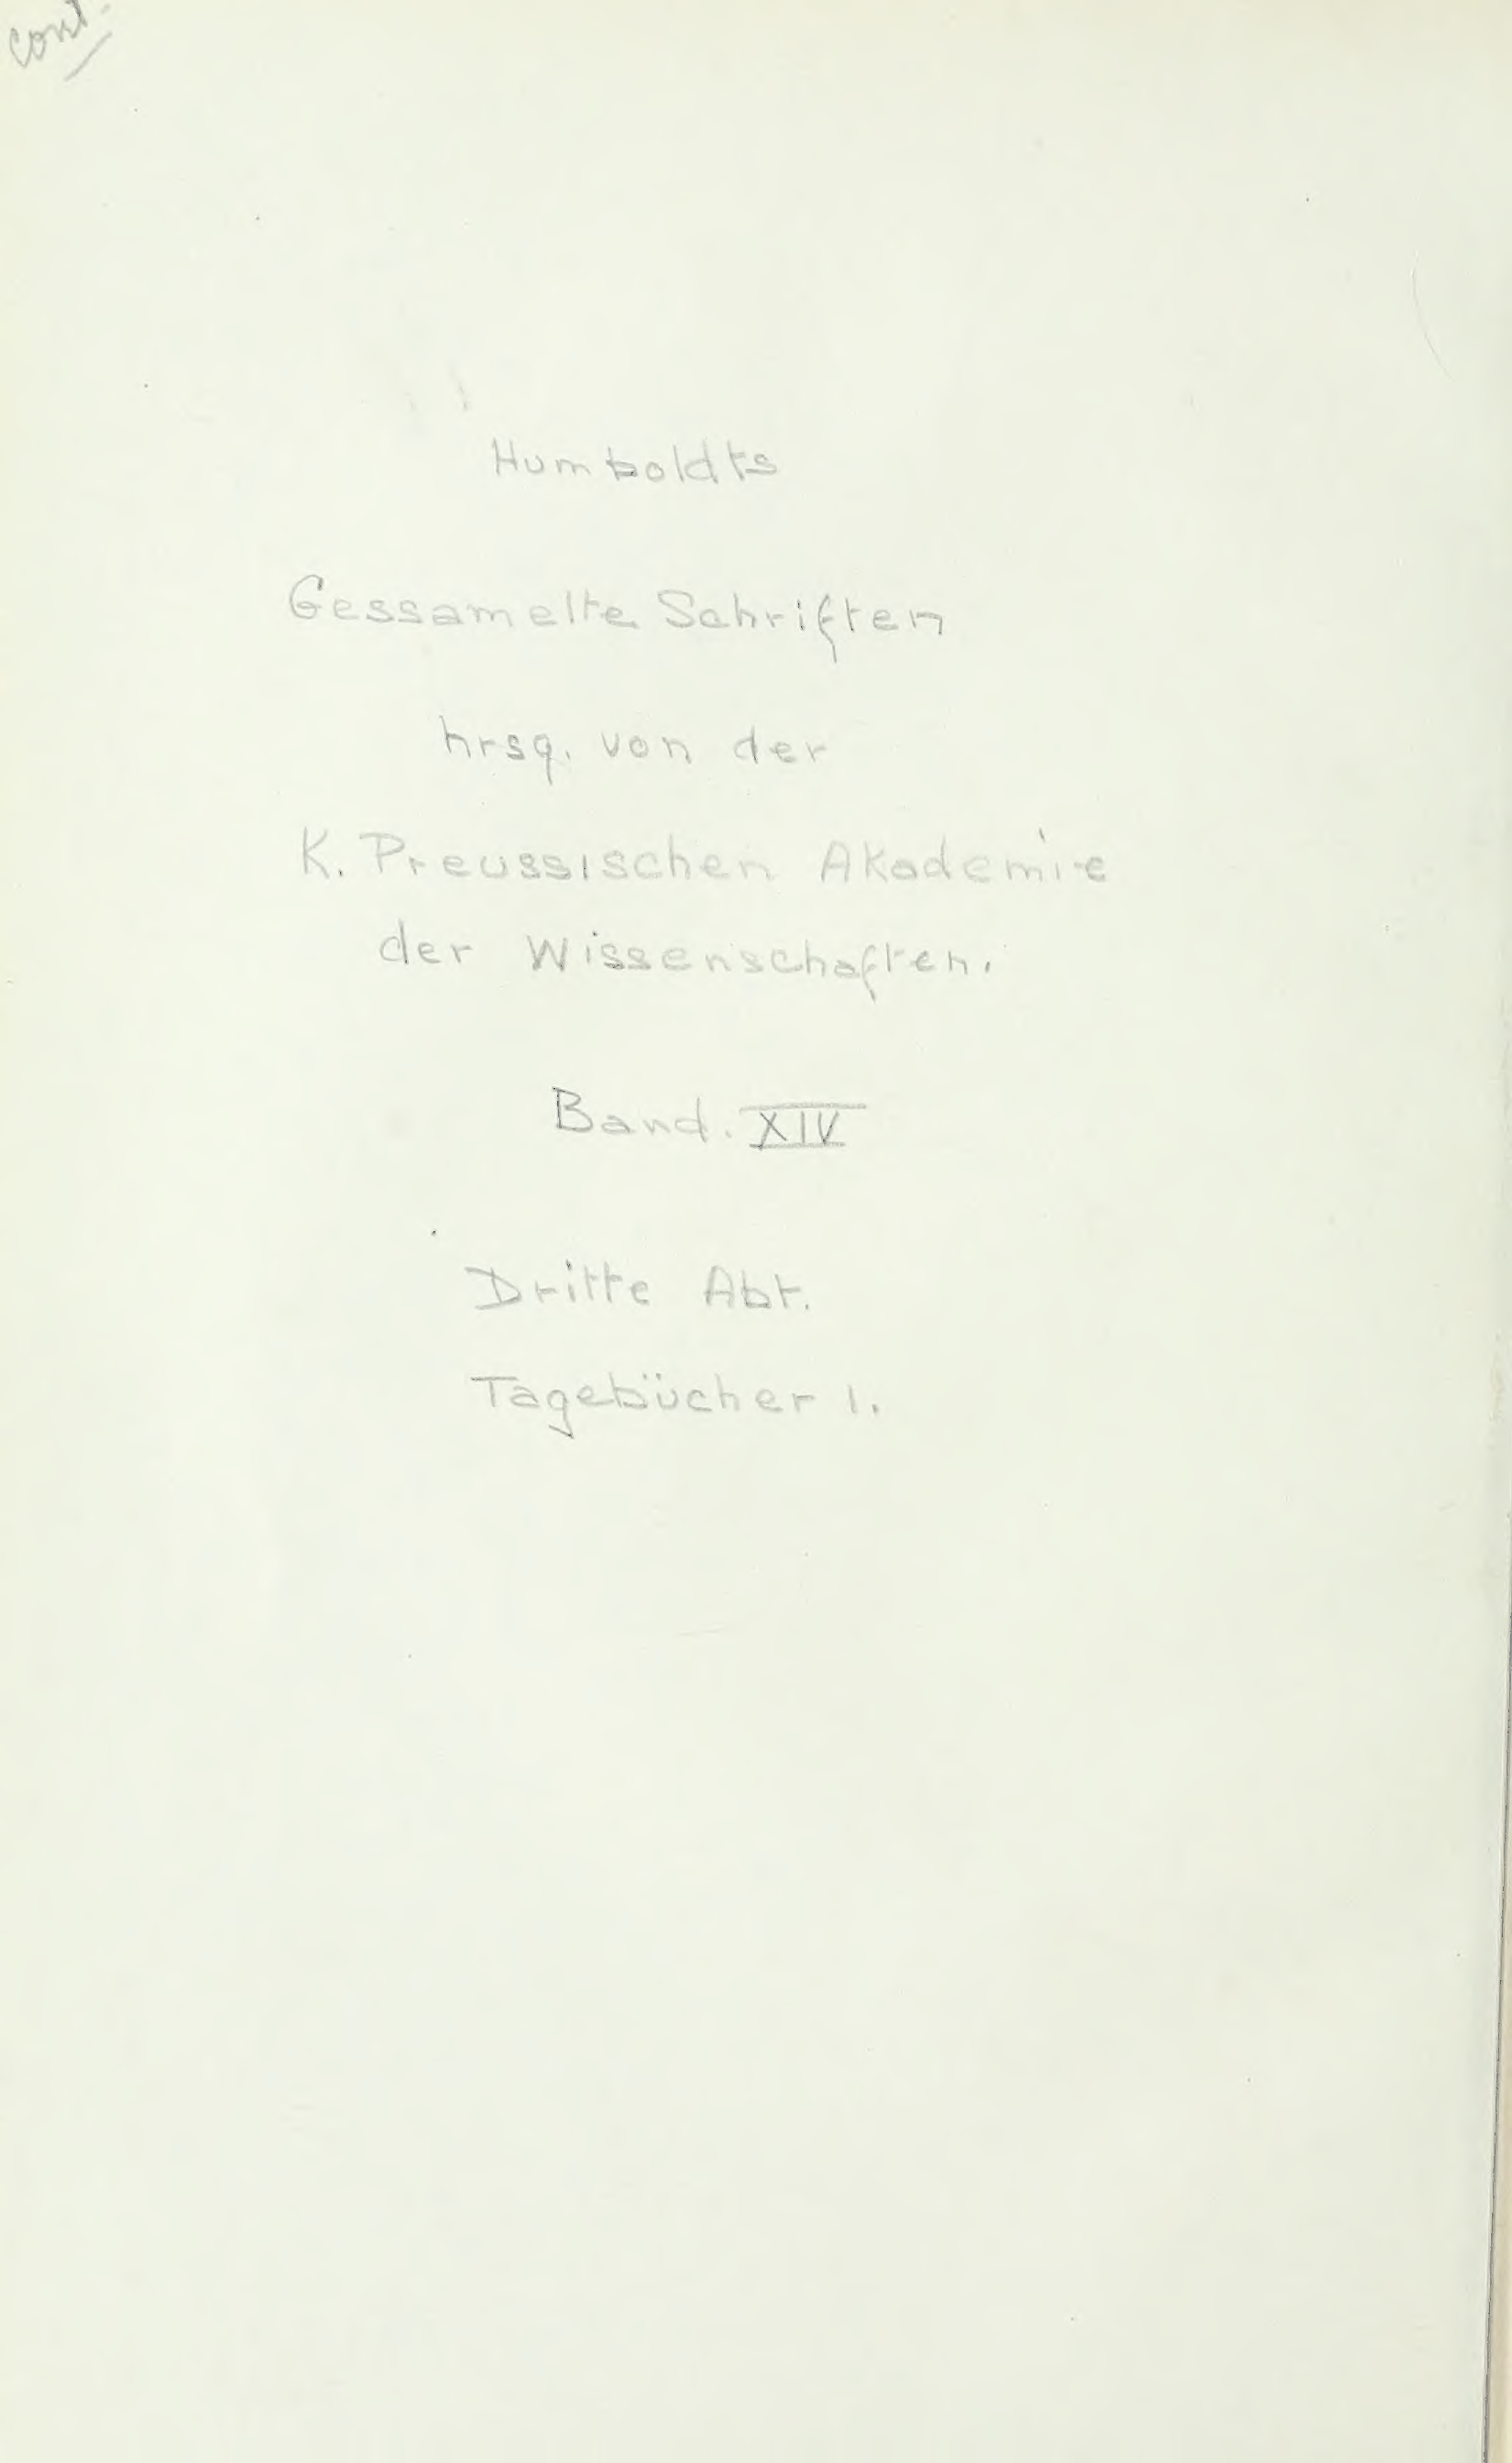 cont.
Humboldts
Gessamelte Schriften
hrsg. von der
K. Preussischen Akademie
der Wissenschaften.
Band. XIV
Dritte Abt.
Tagebücher 1.